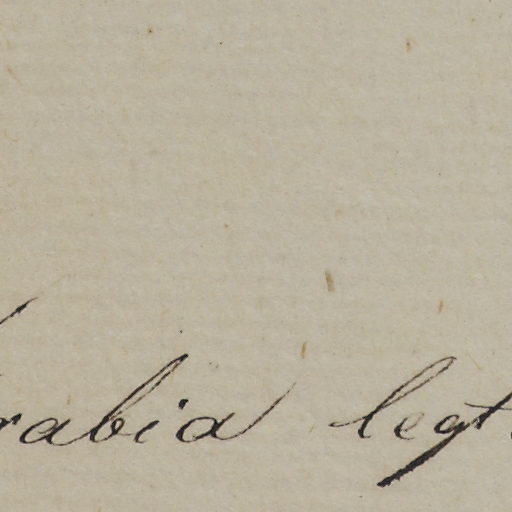 rabia legt.